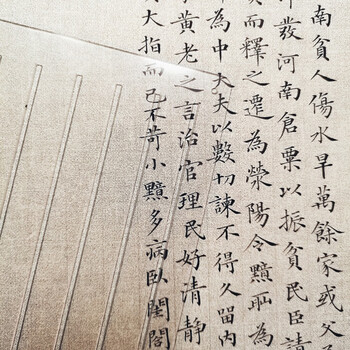 南貧人傷水旱萬餘家或父
發河南倉粟以振貧民臣請
而釋之遷為滎陽令黯耻為
為中大夫以數切諫不得久留内
黃老之言治官理民好清靜
大指而已不苛小黯多病臥閨閤